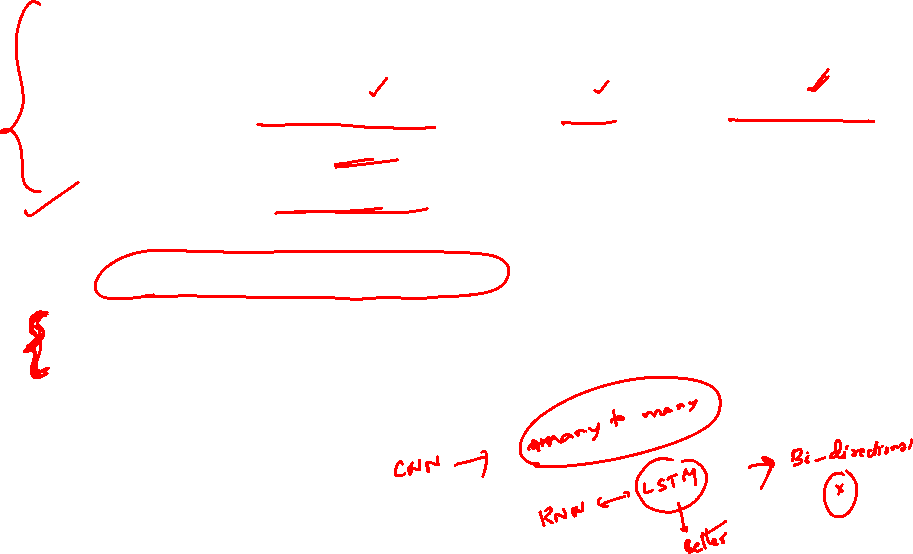 many to many
CNN →
RNN ↔ LSTM → Bi-directional
x
Better